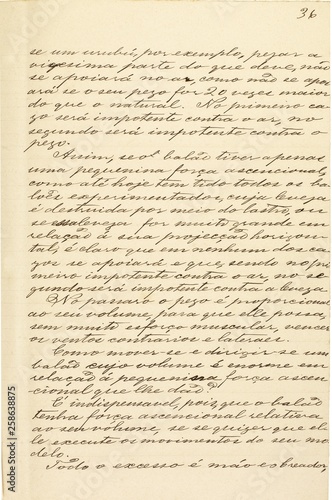 36
se um urubú, por exemplo, pezar a
vigesima parte do que deve, não
se apoiará no ar, como não se apoi
ará se o seu pezo for 20 vezes maior
do que o natural. No primeiro ca
zo será impotente contra o ar, no
segundo será impotente contra o
pezo.
Assim, se o balão tiver apenas
uma pequenina força ascencional,
como até hoje tem tido todos os ba
lões experimentados, cuja leveza
é destruida por meio do lastro, ou
se essa leveza for muito grande em
relação á sua projecção horizon
tal, é claro que em nenhum dos ca
zos se apoiará e que, sendo no pri
meiro impotente contra o ar, no se
gundo será impotente contra a leveza
No passaro o pezo é proporcional
ao seu volume, para que elle possa,
sem muito esforço muscular, vencer
os ventos contrarios e lateraes.
Como mover-se e dirigir-se um
balão cujo volume é enorme em
relação á pequenina força ascen
cional que lhe dão?
É indispensavel, pois, que o balão
tenha força ascencional relativa
ao seu volume, se se quizer que el
le execute os movimentos do seu mo
delo.
Todo o excesso é máo e breador
Adobe Stock | #258638875